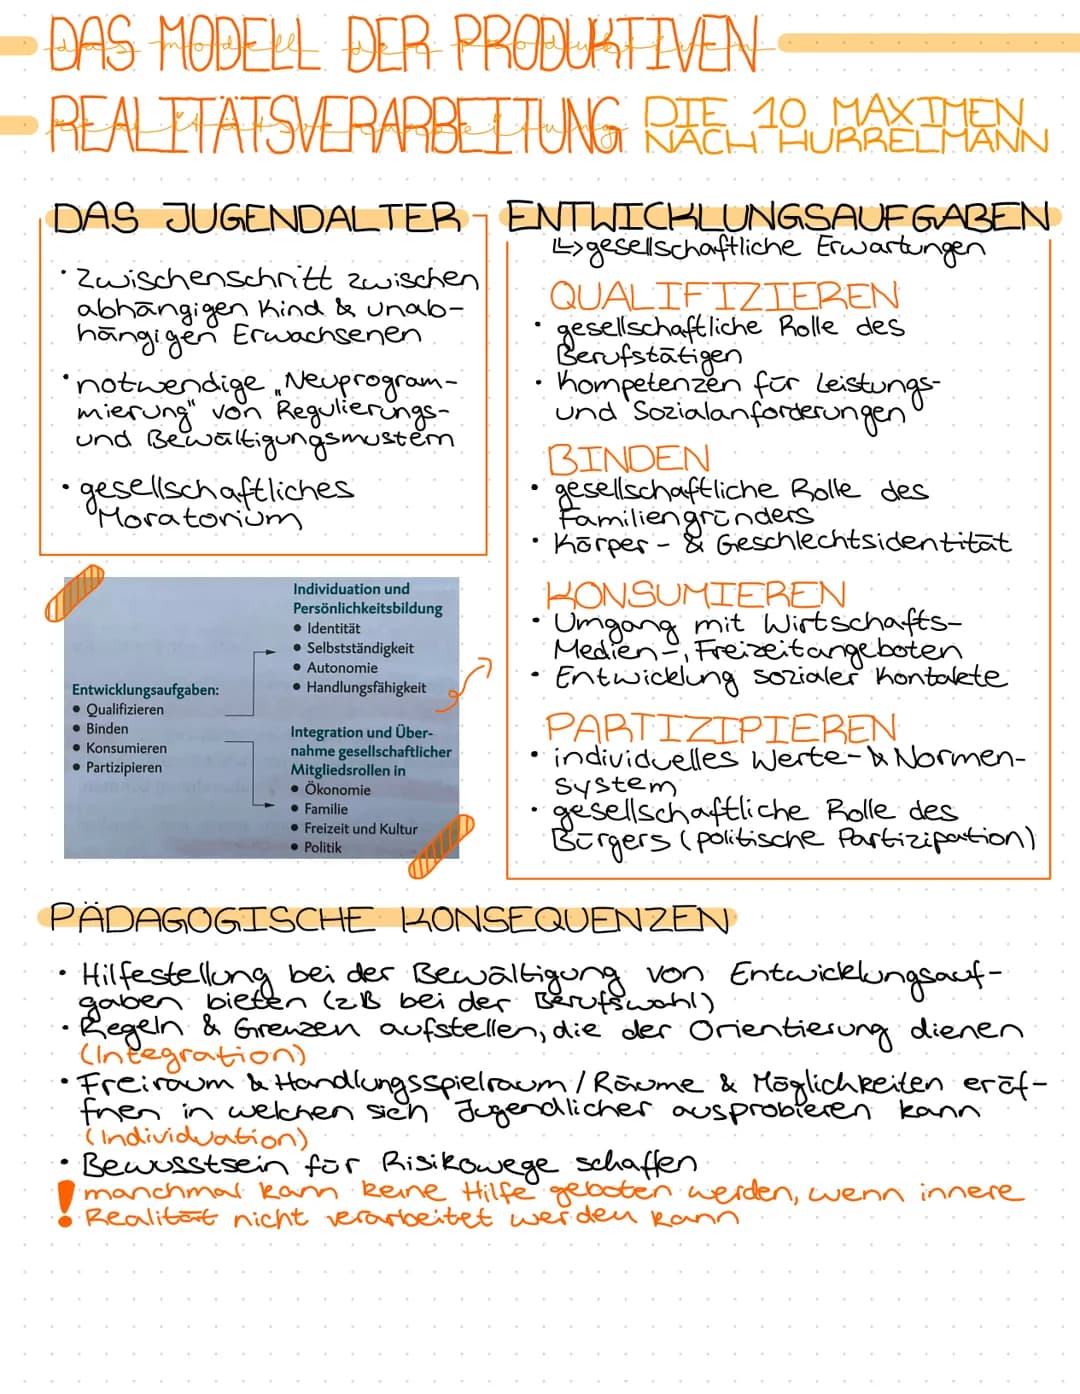 DAS MODELL DER PRODUKTIVEN
das modell der produktiven
REALITÄTSVERARBEITUNG
realitätsverarbeitung
DIE 10 MAXIMEN
NACH HURRELMANN
DAS JUGENDALTER
· Zwischenschritt zwischen
abhängigen Kind & unab-
hängigen Erwachsenen
· notwendige „Neuprogram-
mierung" von Regulierungs-
und Bewältigungsmustern
· gesellschaftliches
Moratorium
ENTWICKLUNGSAUFGABEN
↳> gesellschaftliche Erwartungen
QUALIFIZIEREN
· gesellschaftliche Rolle des
Berufstätigen
· Kompetenzen für Leistungs-
und Sozialanforderungen
BINDEN
· gesellschaftliche Rolle des
Familiengründers
· Körper- & Geschlechtsidentität
KONSUMIEREN
· Umgang mit Wirtschafts-
Medien-, Freizeitangeboten
· Entwicklung sozialer Kontakete
PARTIZIPIEREN
· individuelles Werte- & Normen-
system
· gesellschaftliche Rolle des
Bürgers (politische Partizipation)
Entwicklungsaufgaben:
• Qualifizieren
• Binden
• Konsumieren
• Partizipieren
Individuation und
Persönlichkeitsbildung
• Identität
• Selbstständigkeit
• Autonomie
• Handlungsfähigkeit
Integration und Über-
nahme gesellschaftlicher
Mitgliedsrollen in
• Ökonomie
• Familie
• Freizeit und Kultur
• Politik
PÄDAGOGISCHE KONSEQUENZEN
· Hilfestellung bei der Bewältigung von Entwicklungsauf-
gaben bieten (zB bei der Berufswahl)
· Regeln & Grenzen aufstellen, die der Orientierung dienen
(Integration)
· Freiraum & Handlungsspielraum / Räume & Möglichkeiten eröf-
fnen in welchen sich Jugendlicher ausprobieren kann
(Individuation)
· Bewusstsein für Risikowege schaffen
! manchmal kann keine Hilfe geboten werden, wenn innere
Realität nicht verarbeitet werden kann